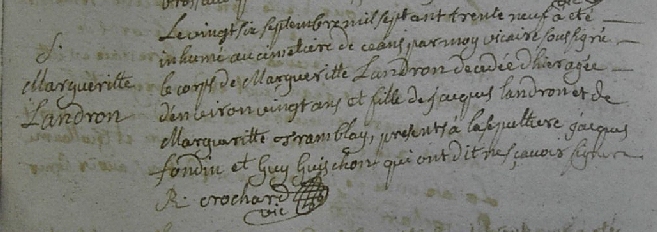 Le vingt six septembre mil sept ent trente neuf a été
S.
inhumé au cimetiere de ceans par moy vicaire soussigné
Margueritte
Landron
le corps de Margueritte Landron decedée d'hier agée
d'environ vingt ans et fille de jacques landron et de
Margueritte tramblay, presents a la sepulture jacques
fondin et Guy Guischon qui ont dit ne sçavoir signer
R. crochard
vic